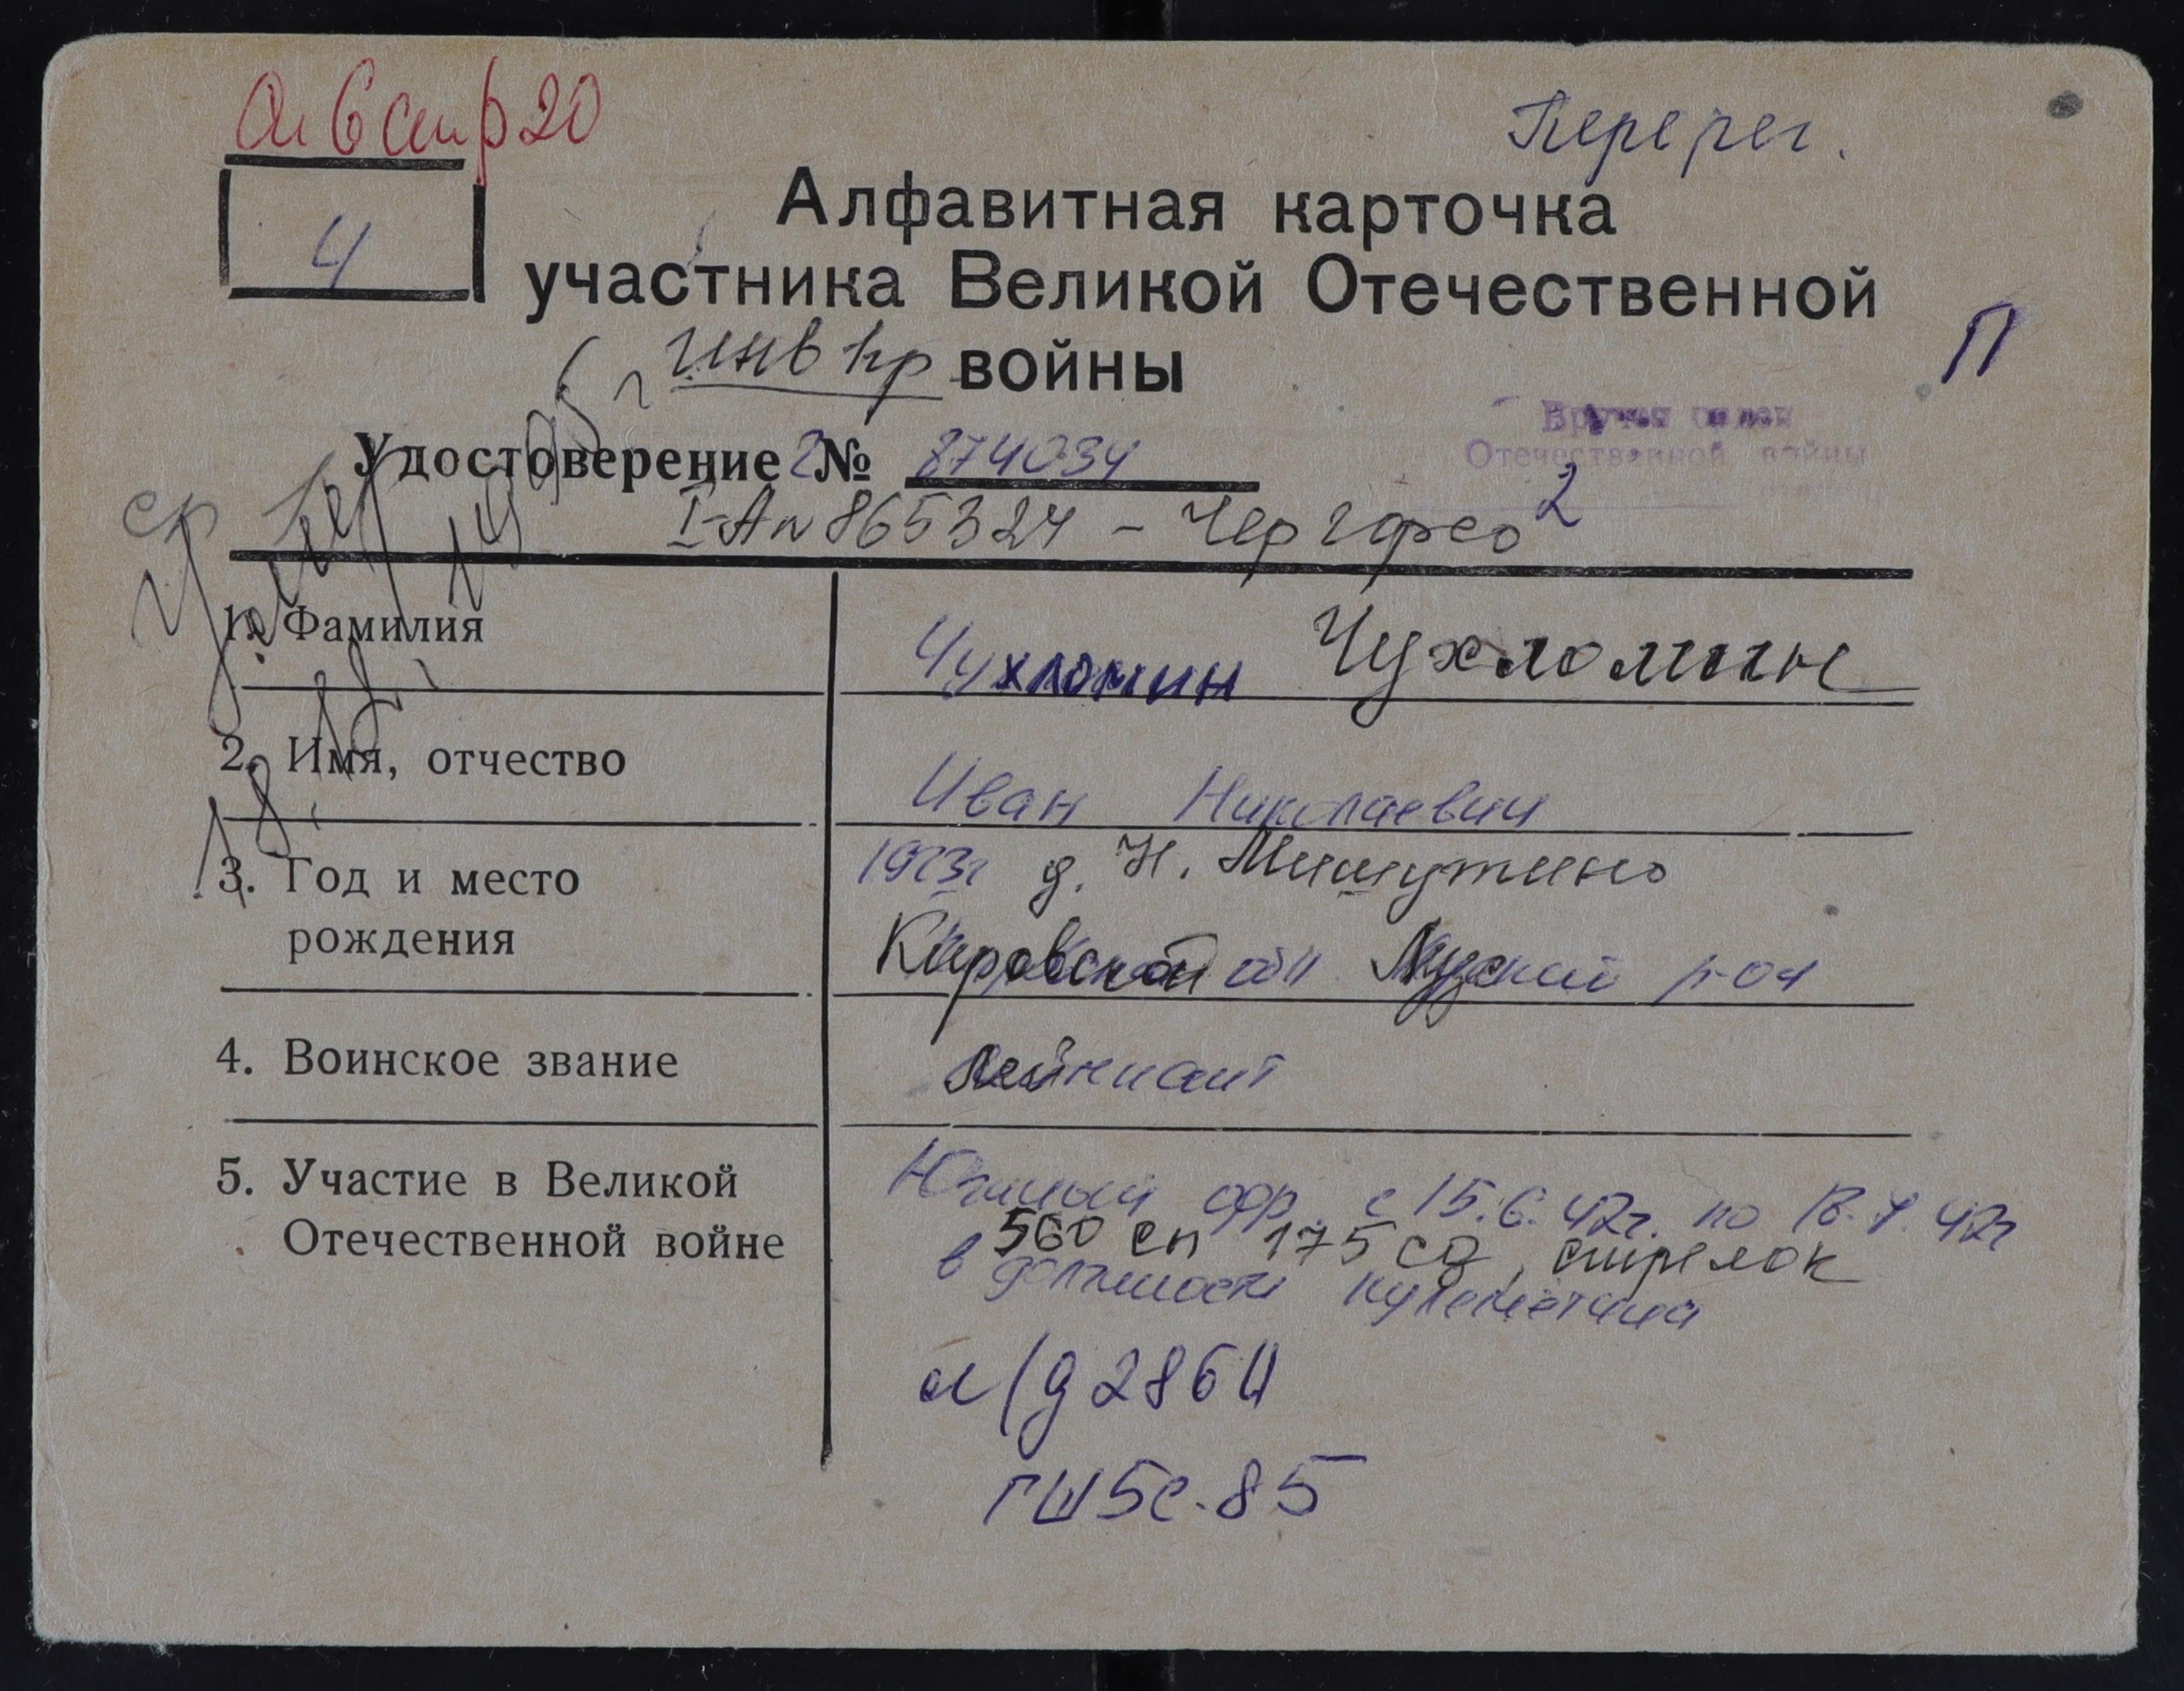 Ал 6 стр 20
Перерег.
4
Алфавитная карточка
участника Великой Отечественной
инв
войны
П
Отечественной войны
Удостоверение № 874034
2
865324
1. Фамилия
Чухломин Чухломин
2. Имя, отчество
Иван Николаевич
3. Год и место
1923г д. Н. Мишутино
рождения
Кировской обл Лузский р-он
4. Воинское звание
лейтенант
5. Участие в Великой
Южный фр. с 15.6.42г. по 42г
Отечественной войне
560 сп 175 сд, стрелок
в должности пулеметчика
л/д 2864
ГШ 5с. 85